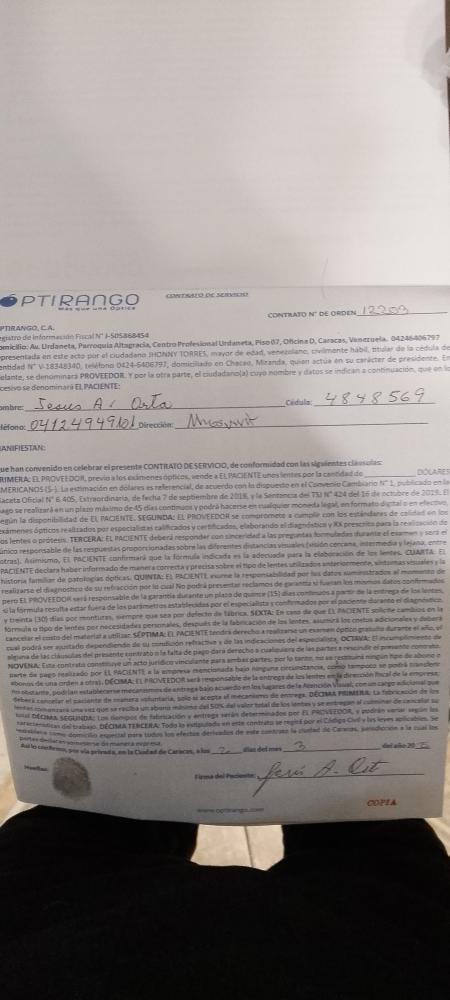 OPTIRANGO
Más que una Óptica
CONTRATO DE SERVICIO
CONTRATO N° DE ORDEN
PTIRANGO, C.A.
egistro de Información Fiscal N° J-505868454
omicilio: Av. Urdaneta, Parroquia Altagracia, Centro Profesional Urdaneta, Piso 07, Oficina D, Caracas, Venezuela. 04246406797
presentada en este acto por el ciudadano JHONNY TORRES, mayor de edad, venezolano, civilmente hábil, titular de la cédula de
entidad N° V-18348340, teléfono 0424-6406797, domiciliado en Chacao, Miranda, quien actúa en su carácter de presidente. En
elante, se denominará PROVEEDOR. Y por la otra parte, el ciudadano(a) cuyo nombre y datos se indican a continuación, que en lo
cesivo se denominará EL PACIENTE:
ombre: Jesus A. Orta Cédula: 4848569
léfono: Dirección:
ANIFIESTAN:
ue han convenido en celebrar el presente CONTRATO DE SERVICIO, de conformidad con las siguientes cláusulas:
RIMERA: EL PROVEEDOR, previo a los exámenes ópticos, vende a EL PACIENTE unos lentes por la cantidad de DÓLARES
MERICANOS ($-). La estimación en dólares es referencial, de acuerdo con lo dispuesto en el Convenio Cambiario N° 1, publicado en la
aceta Oficial N° 6.405, Extraordinaria, de fecha 7 de septiembre de 2018, y la Sentencia del TSJ N° 424 del 16 de octubre de 2019. El
ago se realizará en un plazo máximo de 45 días continuos y podrá hacerse en cualquier moneda legal, en formato digital o en efectivo,
egún la disponibilidad de EL PACIENTE. SEGUNDA: EL PROVEEDOR se compromete a cumplir con los estándares de calidad en los
exámenes ópticos realizados por especialistas calificados y certificados, elaborando el diagnóstico y RX prescrito para la realización de
os lentes o prótesis. TERCERA: EL PACIENTE deberá responder con sinceridad a las preguntas formuladas durante el examen y será el
único responsable de las respuestas proporcionadas sobre las diferentes distancias visuales (visión cercana, intermedia y lejana, entre
otras). Asimismo, EL PACIENTE confirmará que la fórmula indicada es la adecuada para la elaboración de los lentes. CUARTA: EL
PACIENTE declara haber informado de manera correcta y precisa sobre el tipo de lentes utilizados anteriormente, síntomas visuales y la
historia familiar de patologías ópticas. QUINTA: EL PACIENTE asume la responsabilidad por los datos suministrados al momento de
realizarse el diagnóstico de su refracción por lo cual No podrá presentar reclamos de garantía si fueran los mismos datos confirmados
pero EL PROVEEDOR será responsable de la garantía durante un plazo de quince (15) días continuos a partir de la entrega de los lentes,
si la fórmula resulta estar fuera de los parámetros establecidos por el especialista y confirmados por el paciente durante el diagnóstico.
y treinta (30) días por monturas, siempre que sea por defecto de fábrica. SEXTA: En caso de que EL PACIENTE solicite cambios en la
fórmula o tipo de lentes por necesidades personales, después de la fabricación de los lentes, asumirá los costos adicionales y deberá
cancelar el costo del material a utilizar. SÉPTIMA: EL PACIENTE tendrá derecho a realizarse un examen óptico gratuito durante el año, el
cual podrá ser ajustado dependiendo de su condición refractiva y de las indicaciones del especialista. OCTAVA: El incumplimiento de
alguna de las cláusulas del presente contrato o la falta de pago dará derecho a cualquiera de las partes a rescindir el presente contrato.
NOVENA: Este contrato constituye un acto jurídico vinculante para ambas partes, por lo tanto, no se restituirá ningún tipo de abono o
parte de pago realizado por EL PACIENTE a la empresa mencionada bajo ninguna circunstancia, como tampoco se podrá transferir
abonos de una orden a otra). DÉCIMA: EL PROVEEDOR será responsable de la entrega de los lentes en la dirección fiscal de la empresa;
no obstante, podrían establecerse mecanismos de entrega bajo acuerdo en los lugares de la Atención Visual, con un cargo adicional que
deberá cancelar el paciente de manera voluntaria, solo si acepta el mecanismo de entrega. DÉCIMA PRIMERA: La fabricación de los
lentes comenzará una vez que se reciba un abono mínimo del 50% del valor total de los lentes y se entregan al culminar de cancelar su
total DÉCIMA SEGUNDA: Los tiempos de fabricación y entrega serán determinados por EL PROVEEDOR, y podrán variar según las
características del trabajo. DÉCIMA TERCERA: Todo lo estipulado en este contrato se regirá por el Código Civil y las leyes aplicables. Se
establece como domicilio especial para todos los efectos derivados de este contrato la ciudad de Caracas, jurisdicción a la cual las
partes declaran someterse de manera expresa.
Así lo confirmo, por vía privada, en la Ciudad de Caracas, a los 2 días del mes 3 del año 20
Huellas:
Firma del Paciente: Jesús A. Ort
www.optirango.com
COPIA